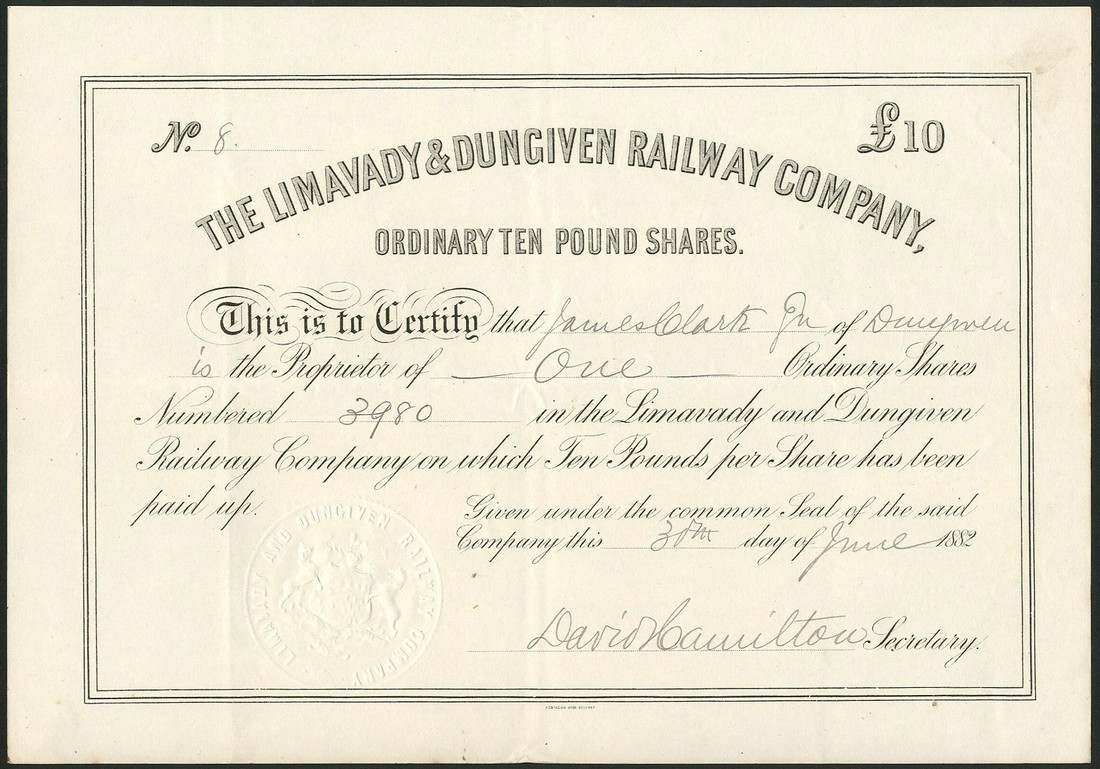 No. 8.
£10
THE LIMAVADY & DUNGIVEN RAILWAY COMPANY,
ORDINARY TEN POUND SHARES.
This is to Certify that James Clark Jn of Dungiven
is the Proprietor of One Ordinary Shares
Numbered 3980 in the Limavady and Dungiven
Railway Company on which Ten Pounds per Share has been
paid up.
Given under the common Seal of the said
Company this 30th day of June 1882
David Hamilton Secretary.
LIMAVADY AND DUNGIVEN RAILWAY COMPANY